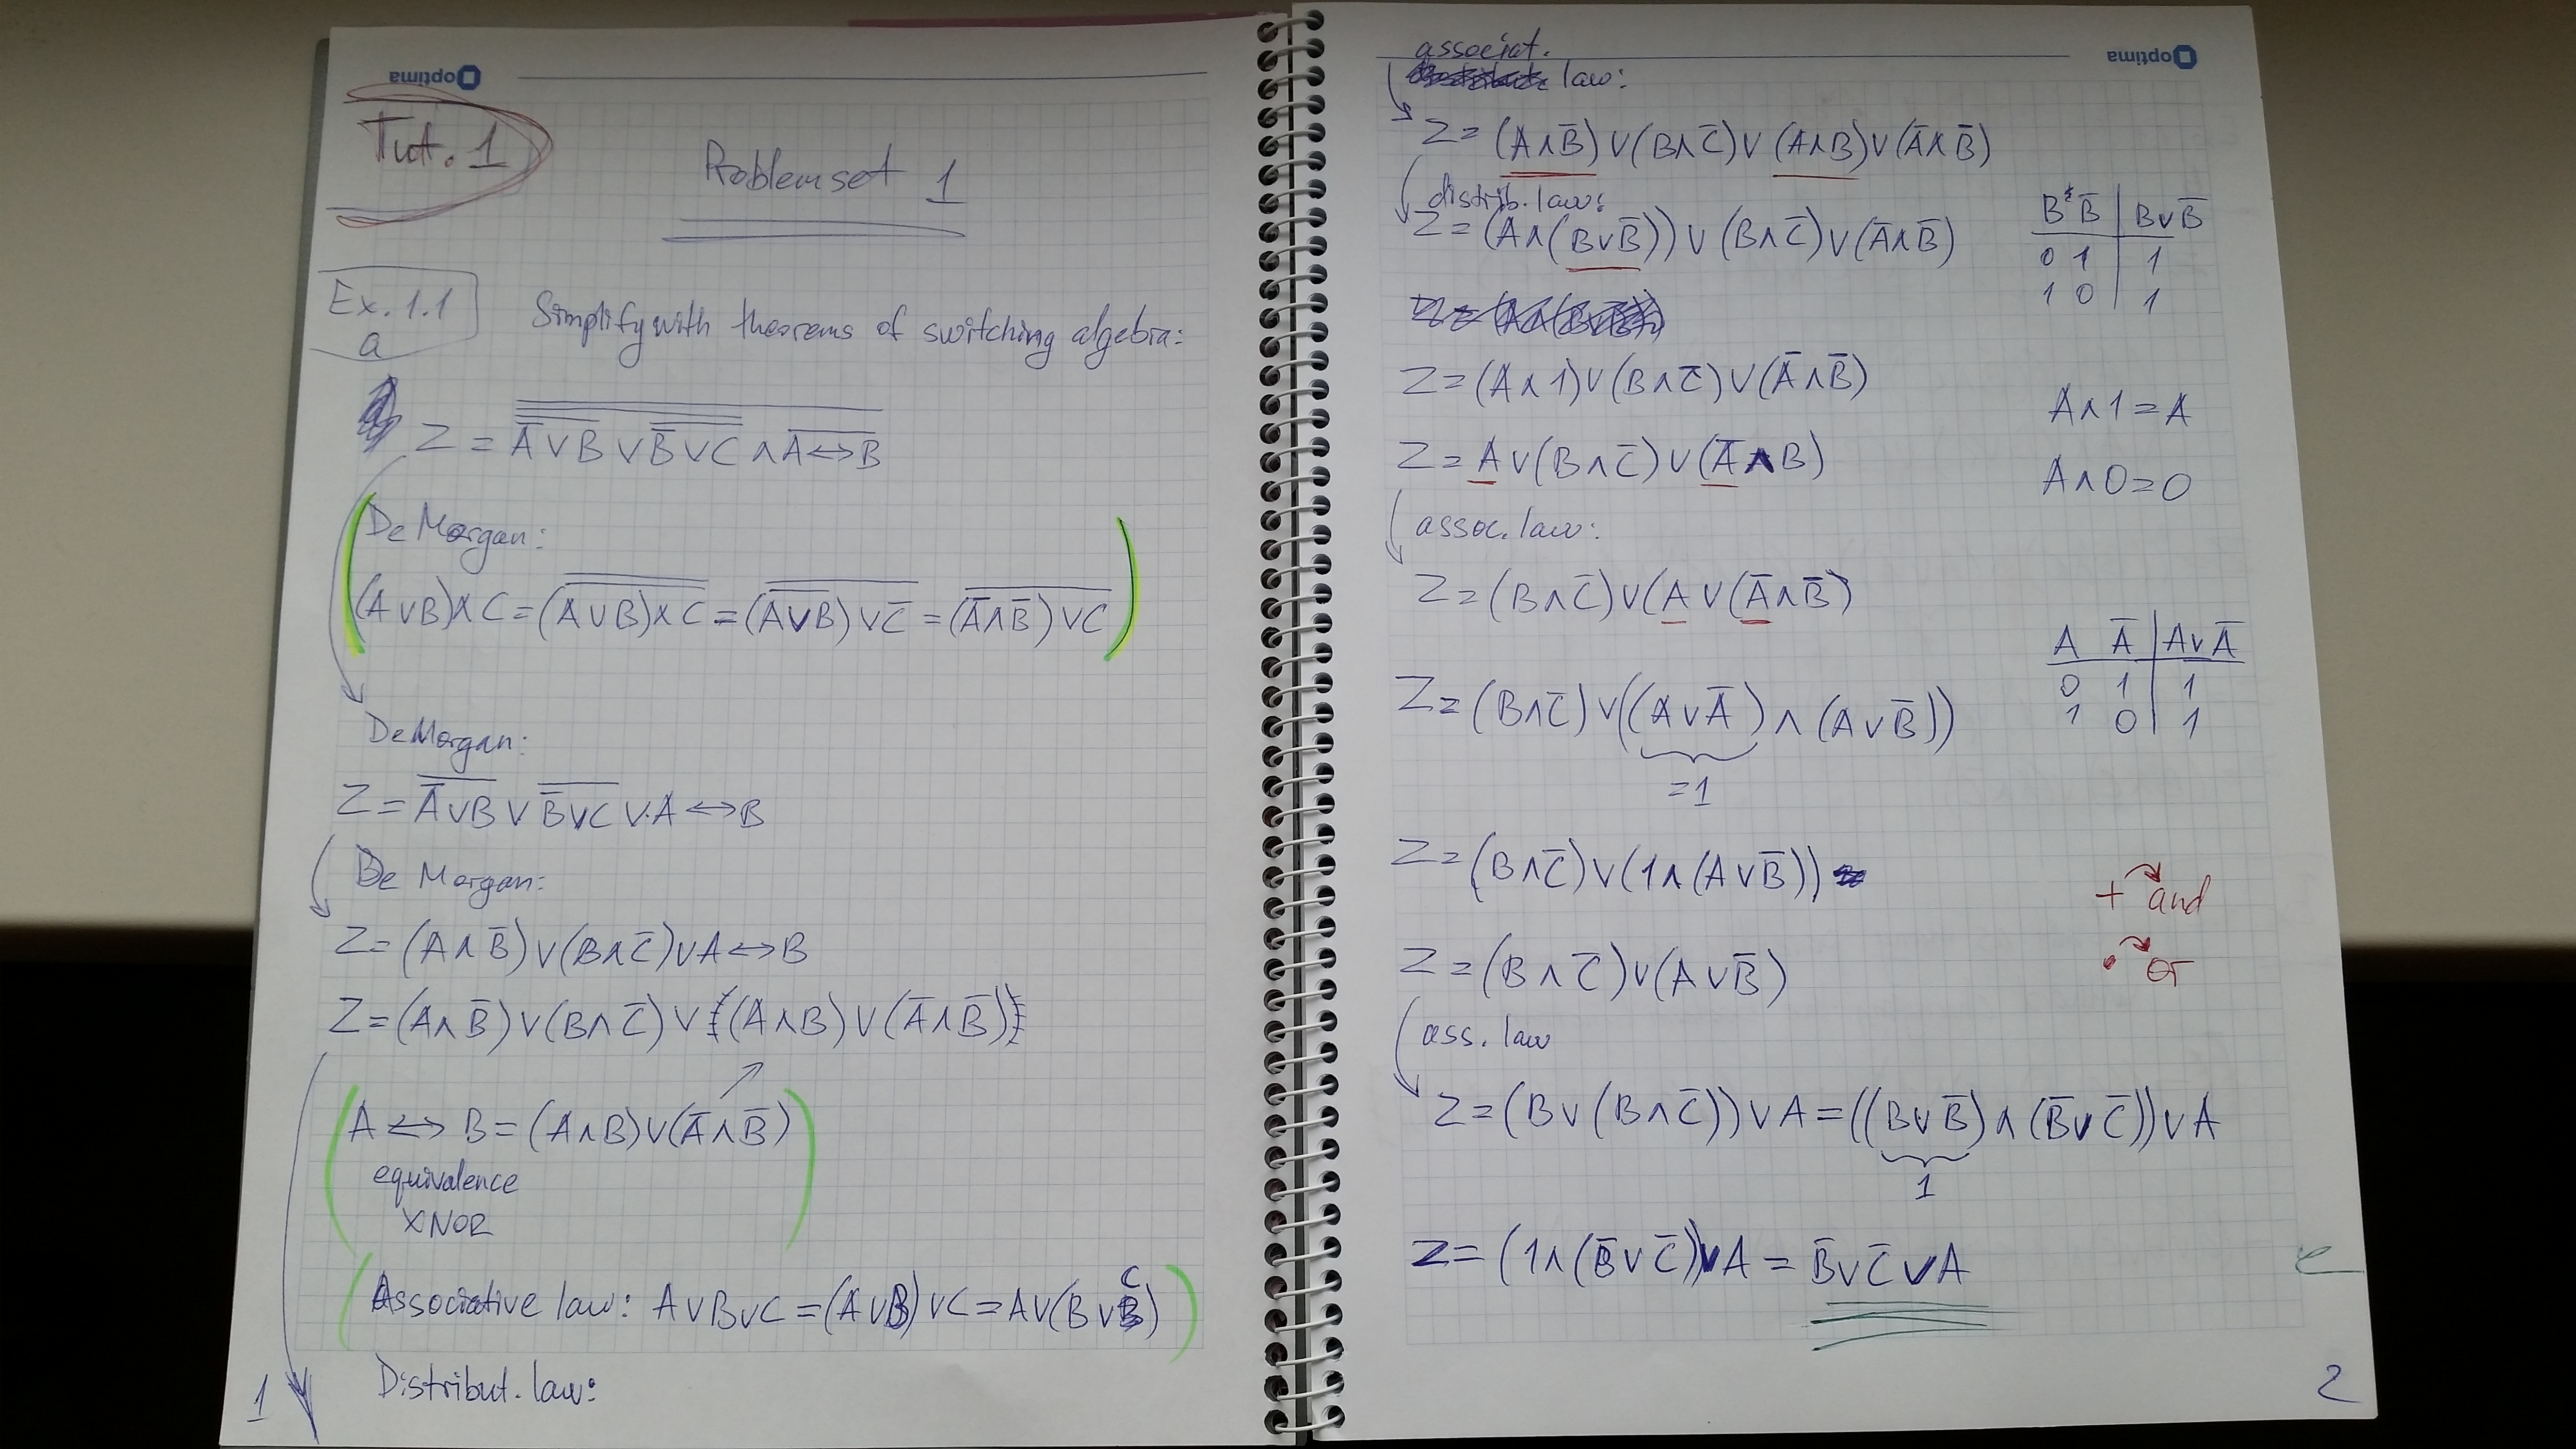 optima
Tut. 1
Problem set 1
Ex. 1.1
a
Simplify with theorems of switching algebra:
Z = A̅∨B ∨ B̅∨C ∧ A↔B
De Morgan:
(A∨B)∧C = (A∨B)∧C = (A∨B)∨C̅ = (A̅∧B̅)∨C
De Morgan:
Z = A̅∨B ∨ B̅∨C ∨ A↔B
De Morgan:
Z = (A∧B̅)∨(B∧C̅)∨A↔B
Z = (A∧B̅)∨(B∧C̅)∨((A∧B)∨(A̅∧B̅))
A ↔ B = (A∧B)∨(A̅∧B̅)
equivalence
XNOR
Associative law: A∨B∨C = (A∨B)∨C = A∨(B∨C)
Distribut. law:
1
optima
associat.
law:
Z = (A∧B̅)∨(B∧C̅)∨(A∧B)∨(A̅∧B̅)
distrib. law:
Z = (A∧(B∨B̅))∨(B∧C̅)∨(A̅∧B̅)
B B̅ | B∨B̅
0 1 | 1
1 0 | 1
Z = (A∧1)∨(B∧C̅)∨(A̅∧B̅)
A∧1 = A
Z = A∨(B∧C̅)∨(A̅∧B)
A∧0 = 0
assoc. law:
Z = (B∧C̅)∨(A∨(A̅∧B̅)
A A̅ | A∨A̅
0 1 | 1
1 0 | 1
Z = (B∧C̅)∨((A∨A̅)∧(A∨B̅))
=1
Z = (B∧C̅)∨(1∧(A∨B̅))
+ and
• or
Z = (B∧C̅)∨(A∨B̅)
ass. law
Z = (B∨(B∧C̅))∨A = ((B∨B̅)∧(B̅∨C̅))∨A
1
Z = (1∧(B̅∨C̅))∨A = B̅∨C̅∨A
2